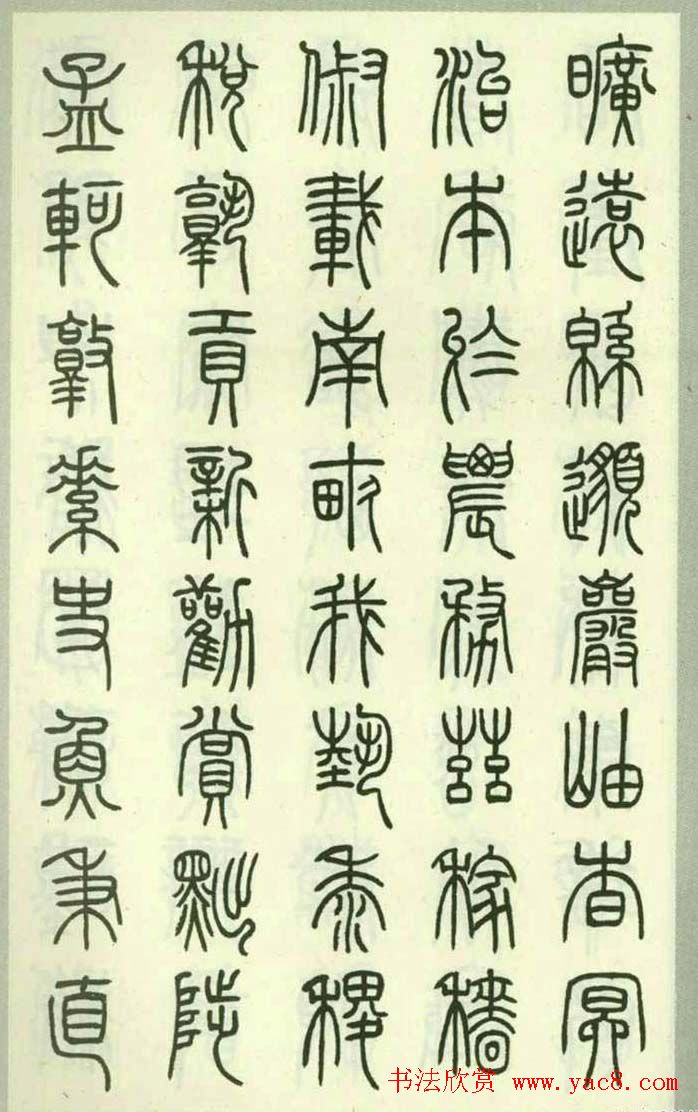 曠遠緜邈巖岫杳冥
治本於農務茲稼穡
俶載南畝我藝黍稷
稅孰貢新勸賞黜陟
孟軻敦素史魚秉直
书法欣赏 www.yac8.com